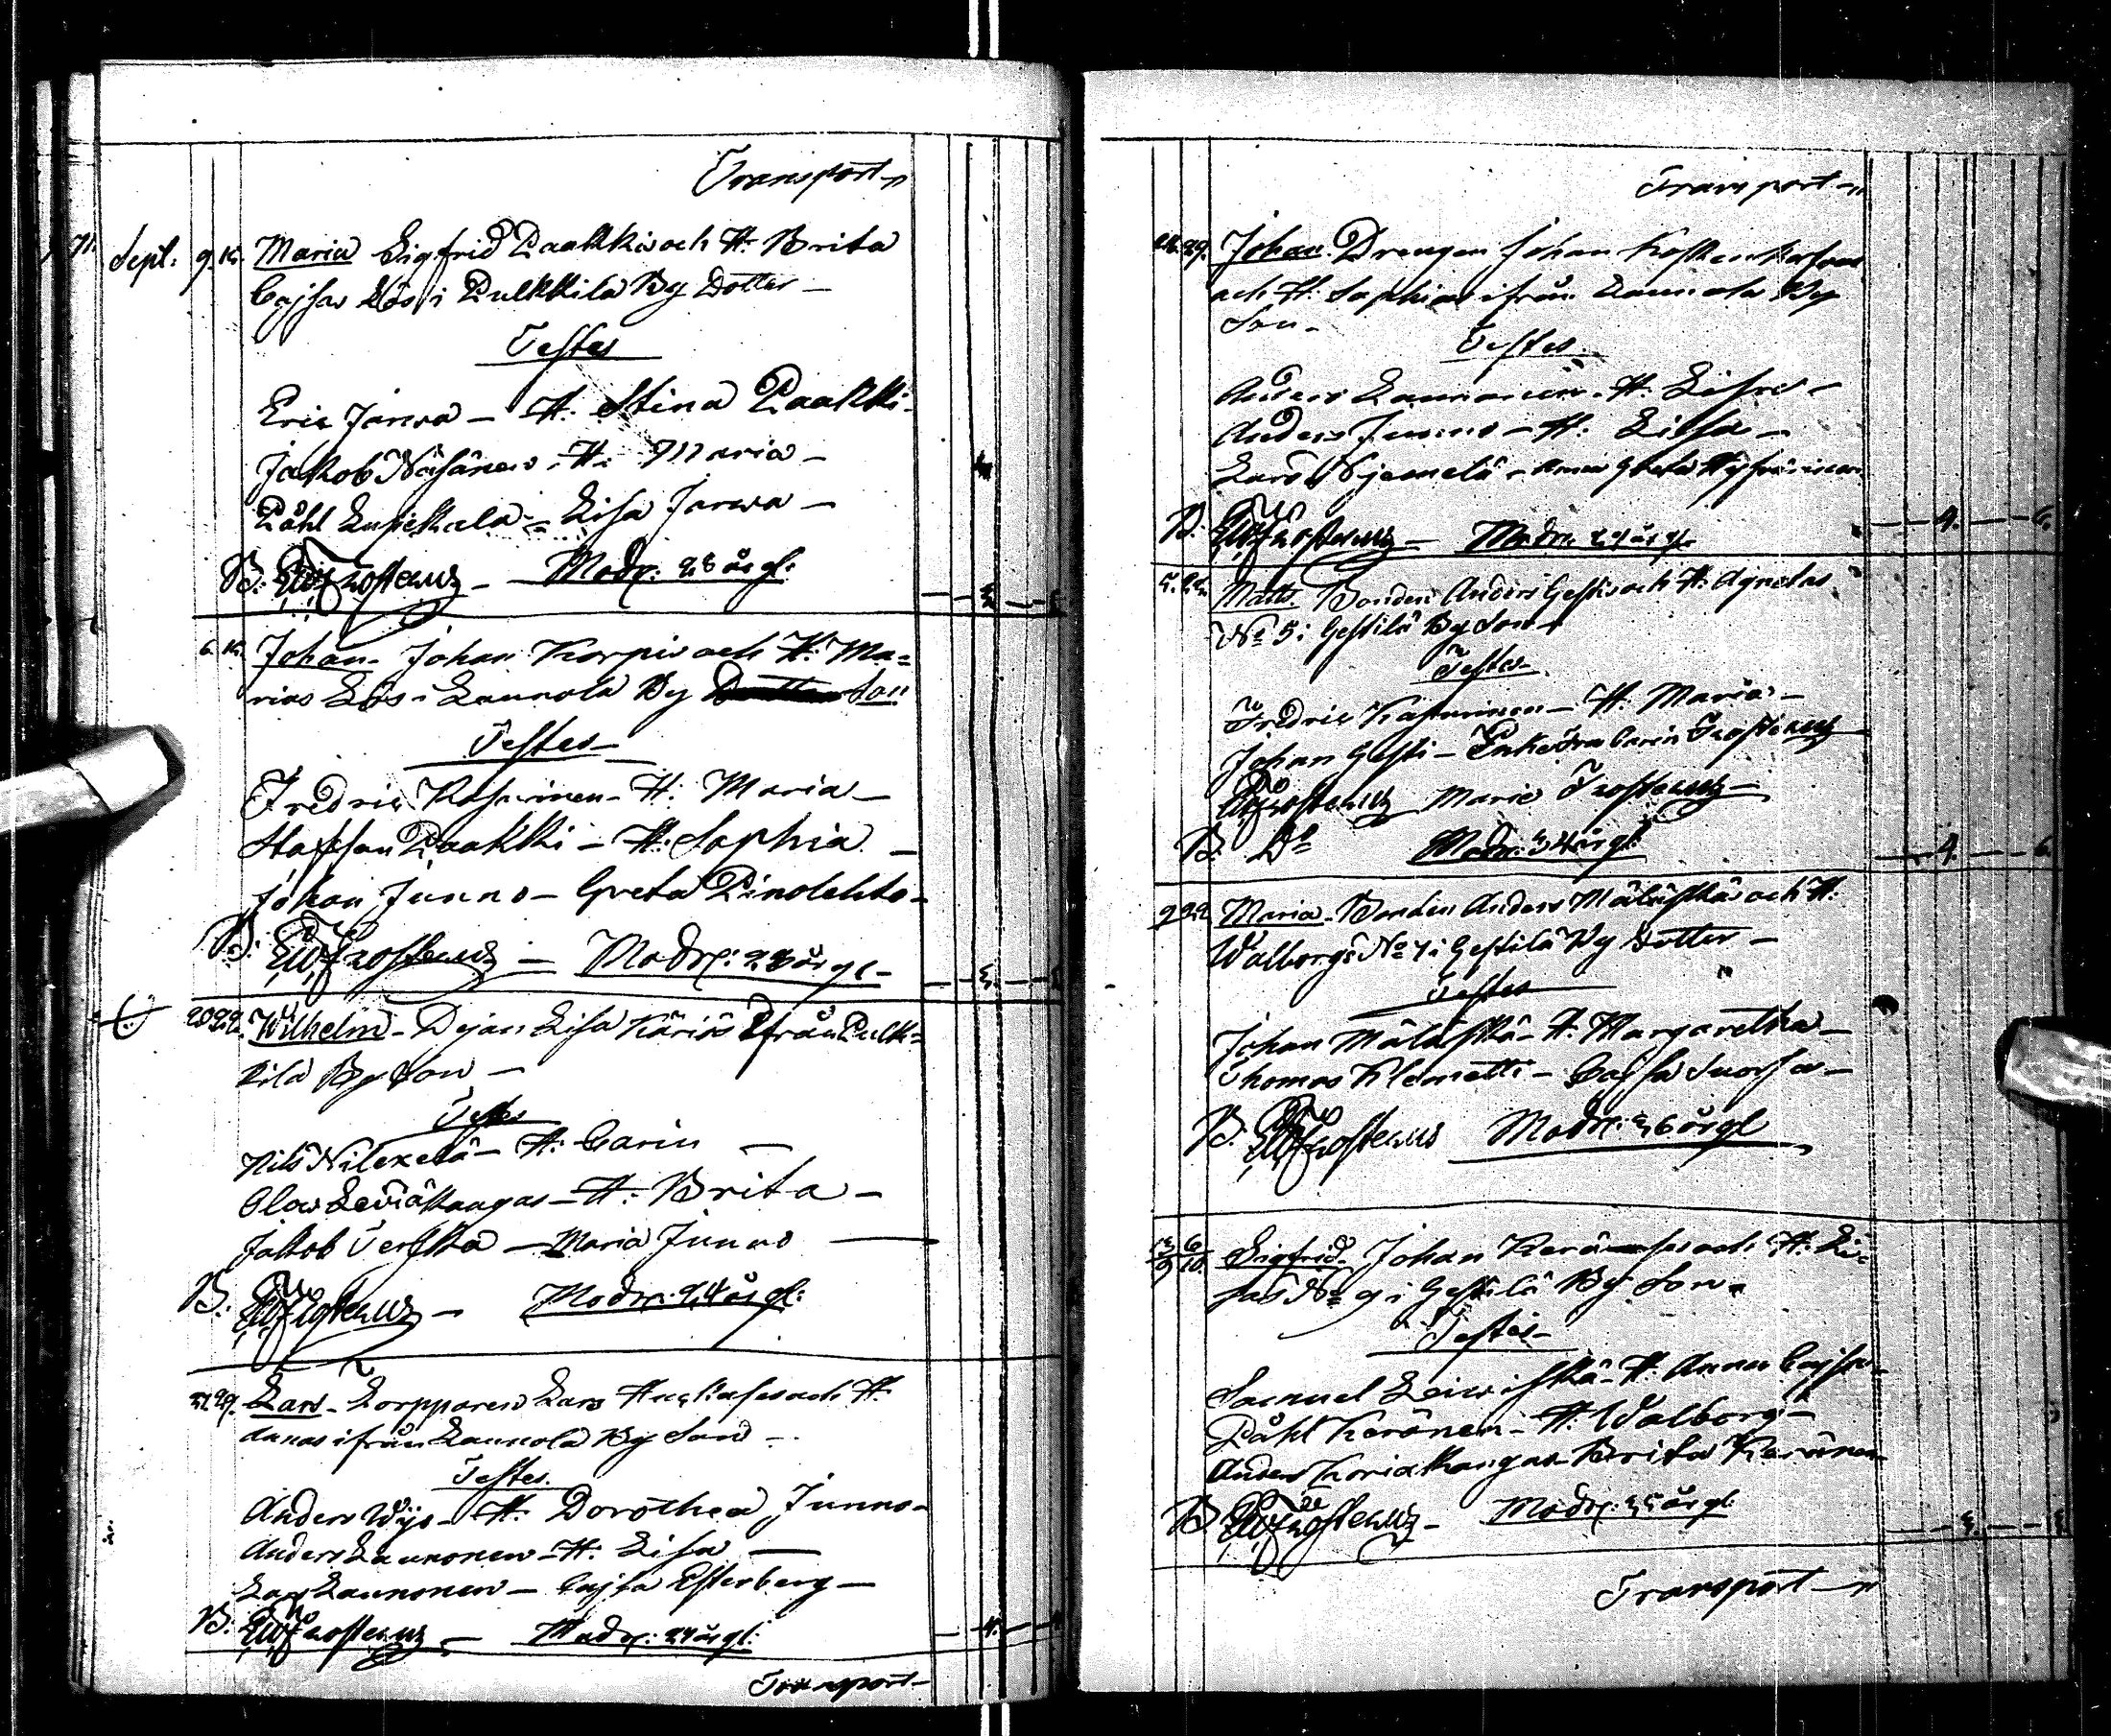 Transport
Sept. 9. 16. Maria Sigfrid Paakkis och H. Brita
Cajsas Lös i Pulkkila By Dotter
Testes
Eric Jarwa H. Stina Paakki
Jakob Näsänen H. Maria
Påhl Lusikkala Lisa Jarwa
B. E W Frosterus Modr. 28 år gl.
6. 16. Johan Johan Karpis och H. Ma=
rias Lös i Launola By Dotter Son
Testes
Fredric Kasurinen H. Maria
Staffan Paakki H. Sophia
Johan Junno Greta Pinolehto
B. E W Frosterus Modr. 28 år gl.
20 22. Wilhelm Pigan Lisa Käriäs ifrån Pulk=
kila By Son
Testes
Nils Nilexelä H. Carin
Olow Leviäkangas H. Brita
Jakob Terska Maria Junno
B. E W Frosterus Modr. 24 år gl.
27. 29. Lars Torpparen Lars och H.
ifrån Launola By Son
Testes
Anders Wijo H. Dorothea Junno
Anders Launonen H. Lisa
Lars Launonen Cajsa Esterberg
B. E W Frosterus Modr. 24 år gl. 4.
Transport
Transport
29. Johan Drengen Johan
och H. Sophias ifrån Launola By
Son
Testes
Anders Launonen H. Lisa
Anders Junno H. Lisa
Lars Njemelä Anna Greta
B. E W Frosterus Modr. 24 år gl. 4. 6.
Matts. Bonden Anders Gestis och H. Agnetas
No 5 i Gestilä By Son
Testes
Fredric Kasurinen H. Maria
Johan Gesti Enkefru Carin Frosterus
E W Frosterus Maria Frosterus
B. Do Modr. 34 år gl. 4. 6.
Maria Bonden Anders Mäläskäs och H.
Walborgs No 7 i Gestilä By Dotter
Testes
Johan Mäläskä H. Margaretha
Thomas Klemetti Cajsa Suorsa
B. E W Frosterus Modr. 36 år gl.
6/10. Sigfrid Johan Keränens och H. Li=
sas No 9 i Gestilä By Son
Testes
Samuel Leiwiskä H. Anna Cajsa
Påhl Keränen H. Walborg
Anders Koriakangas Brita Keränen
B. E W Frosterus Modr. 35 år gl.
Transport